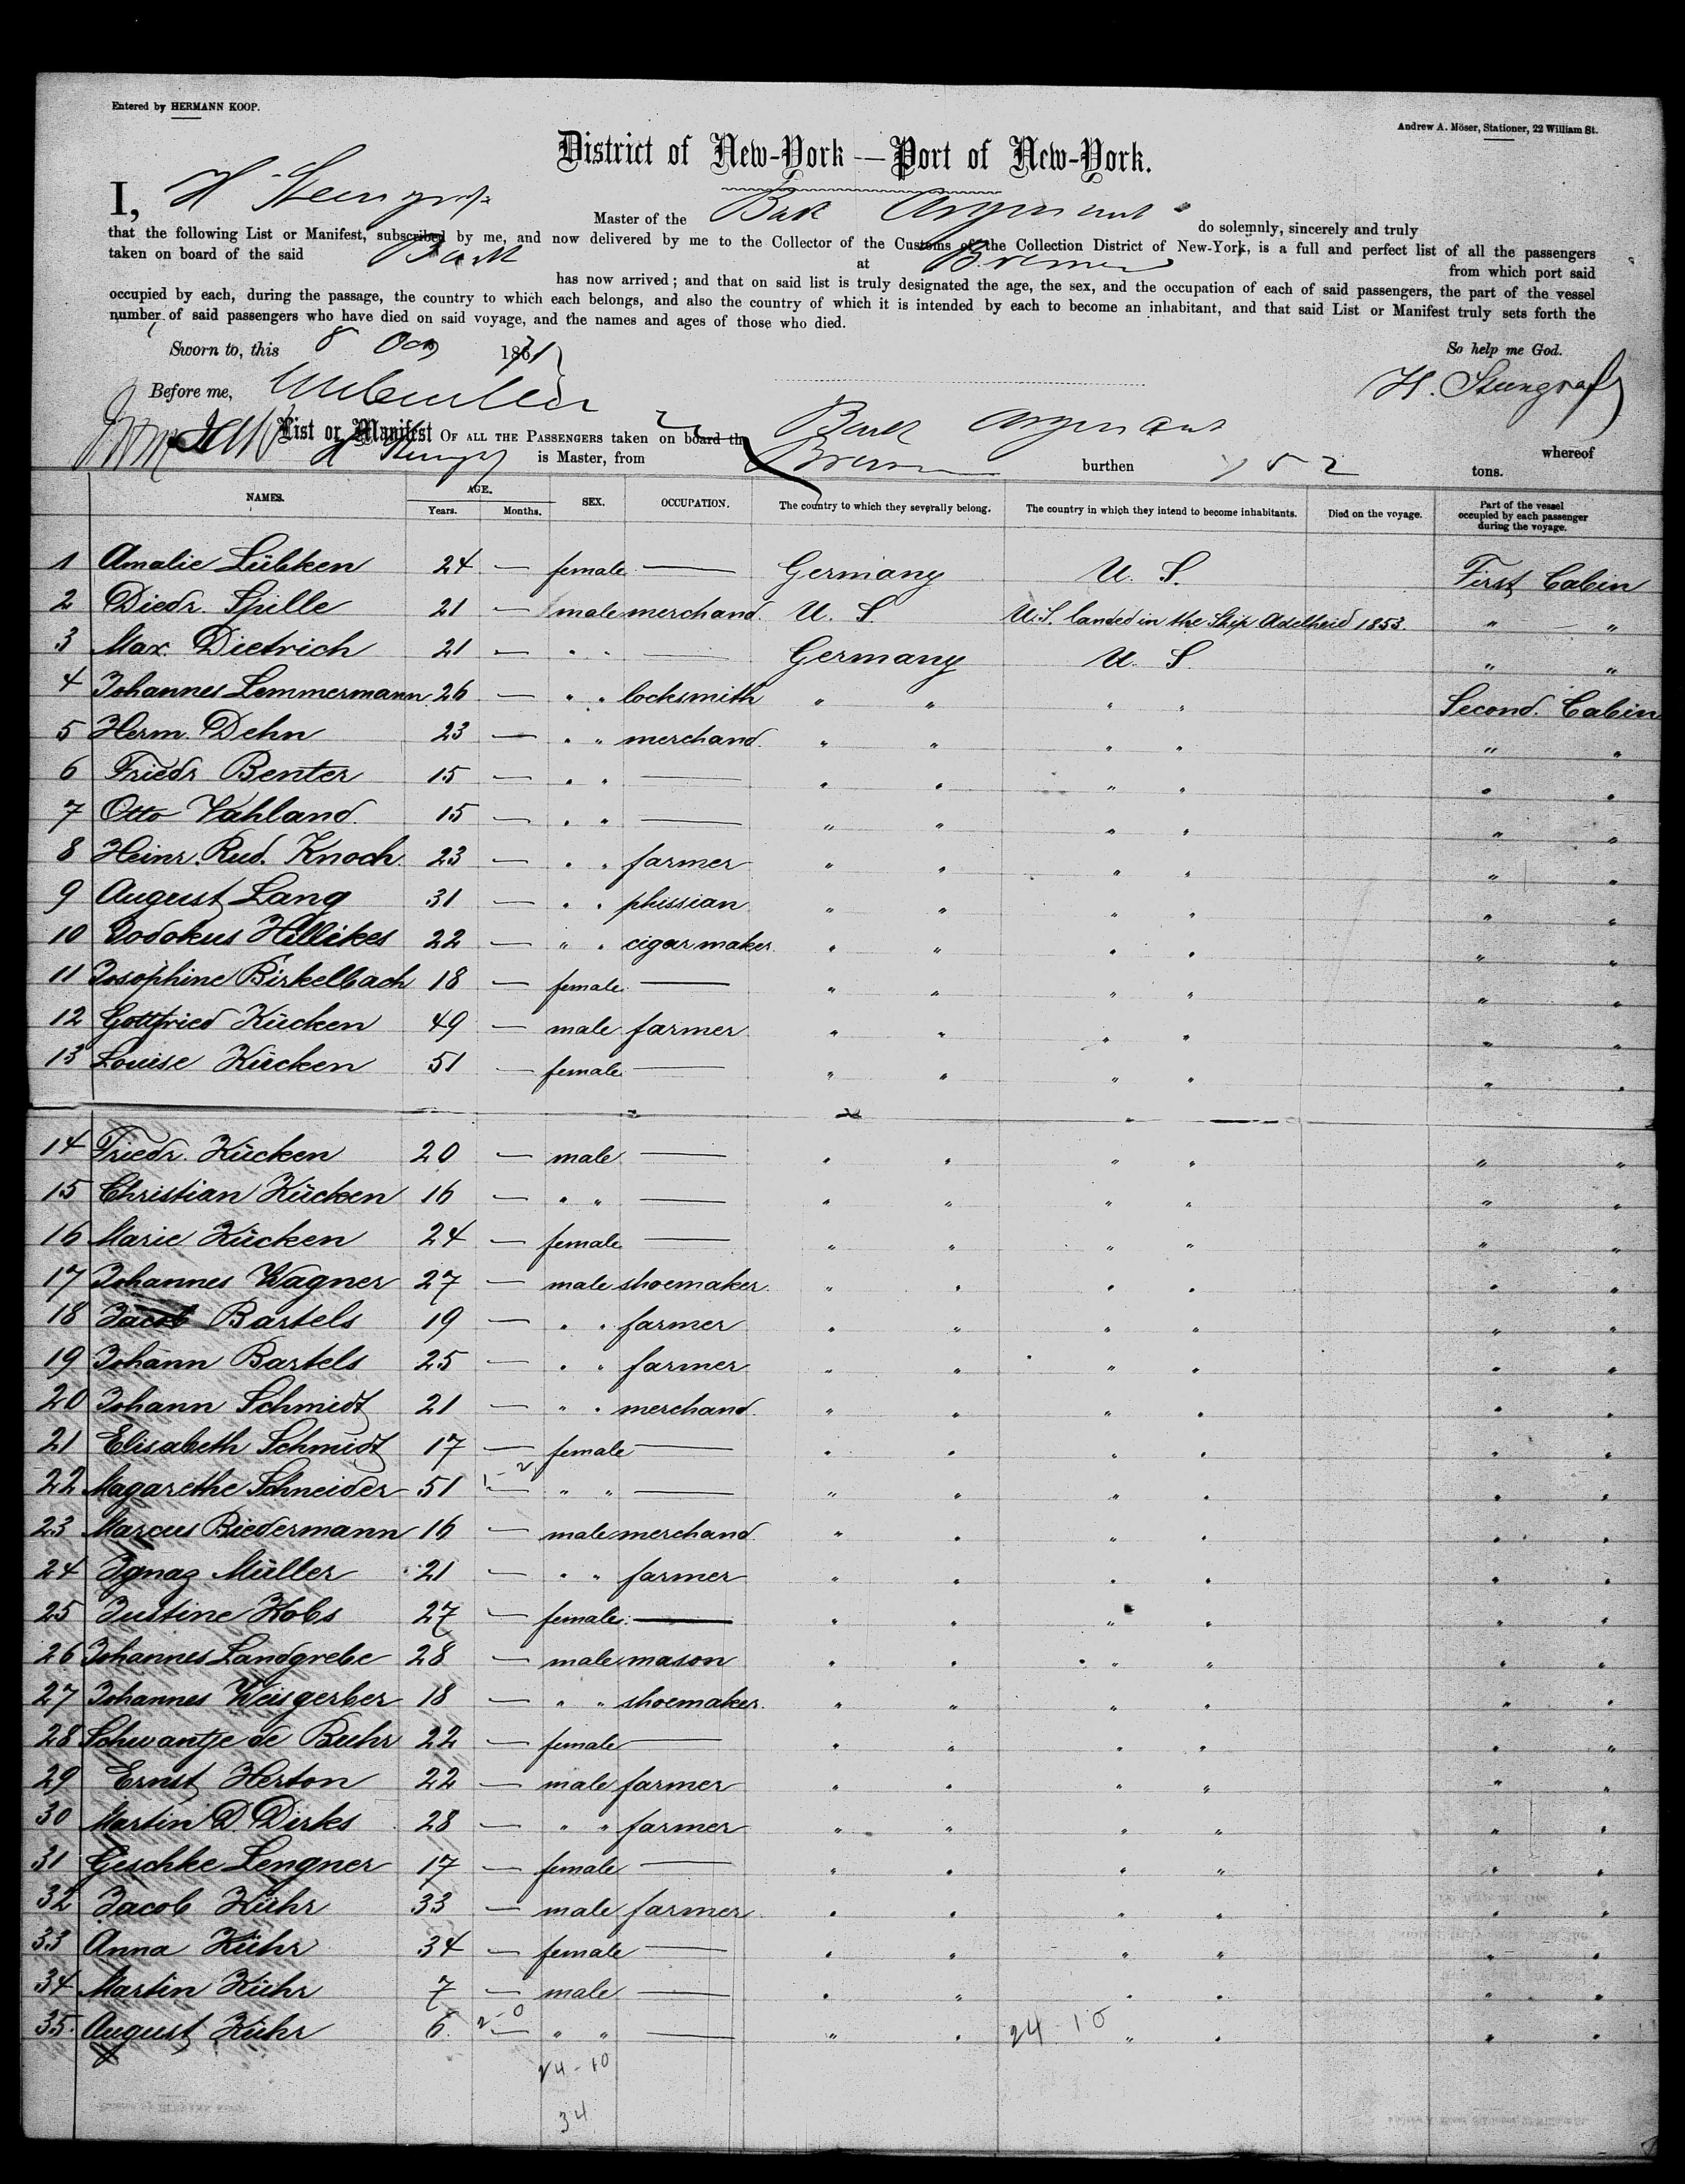 Entered by HERMANN KOOP.
Andrew A. Möser, Stationer, 22 William St.
District of New-York — Port of New-York.
I, H Steengrafe Master of the Bark do solemnly, sincerely and truly
that the following List or Manifest, subscribed by me, and now delivered by me to the Collector of the Customs of the Collection District of New-York, is a full and perfect list of all the passengers
taken on board of the said Bark at Bremen from which port said
has now arrived; and that on said list is truly designated the age, the sex, and the occupation of each of said passengers, the part of the vessel
occupied by each, during the passage, the country to which each belongs, and also the country of which it is intended by each to become an inhabitant, and that said List or Manifest truly sets forth the
number of said passengers who have died on said voyage, and the names and ages of those who died.
Sworn to, this 8 1871 So help me God.
Before me, H. Steengrafe
List or Manifest OF ALL THE PASSENGERS taken on board the Bark whereof
is Master, from Bremen burthen 752 tons.
NAMES. AGE. Years. Months. SEX. OCCUPATION. The country to which they severally belong. The country in which they intend to become inhabitants. Died on the voyage. Part of the vessel occupied by each passenger during the voyage.
1 Amalie Lübken 24 — female — Germany U. S. First Cabin
2 Diedr. Spille 21 — male merchand. U. S. U.S. landed in the Ship Adelheid 1853. " — "
3 Max. Dietrich 21 — " " — Germany U. S. " "
4 Johannes Lemmermann 26 — " " locksmith " " " " Second. Cabin
5 Herm. Dehn 23 — " " merchand. " " " " " "
6 Friedr Benter 15 — " " — " " " " " "
7 Otto Vahland. 15 — " " — " " " " " "
8 Heinr. Rud. Knoch. 23 — " " farmer " " " " " "
9 August Lang 31 — " " phissian " " " " " "
10 Jodokus Hillikes 22 — " " cigar maker. " " " " " "
11 Josophine Birkelbach 18 — female — " " " " " "
12 Gottfried Kücken 49 — male farmer " " " " " "
13 Louise Kücken 51 — female — " " " " " "
14 Friedr. Kücken 20 — male — " " " " " "
15 Christian Kücken 16 — " " — " " " " " "
16 Marie Kücken 24 — female — " " " " " "
17 Johannes Wagner 27 — male shoemaker. " " " " " "
18 Jacob Bartels 19 — " " farmer " " " " " "
19 Johann Bartels 25 — " " farmer " " " " " "
20 Johann Schmidt 21 — " " merchand. " " " " " "
21 Elisabeth Schmidt 17 — female — " " " " " "
22 Magarethe Schneider 51 — " " — " " " " " "
23 Marcus Biedermann 16 — male merchand. " " " " " "
24 Ignaz Müller 21 — " " farmer " " " " " "
25 Justine Kobs 27 — female — " " " " " "
26 Johannes Landgrebe 28 — male mason " " " " " "
27 Johannes Weisgerber 18 — " " shoemaker. " " " " " "
28 Schwantje de Buhr 22 — female — " " " " " "
29 Ernst Herton 22 — male farmer " " " " " "
30 Martin D. Dirks 28 — " " farmer " " " " " "
31 Geschke Lengner 17 — female — " " " " " "
32 Jacob Kühr 33 — male farmer " " " " " "
33 Anna Kühr 34 — female — " " " " " "
34 Martin Kühr 7 — male — " " " " " "
35. August Kühr 6. — " " — " " 24 - 10 " " " "
24 - 10
34